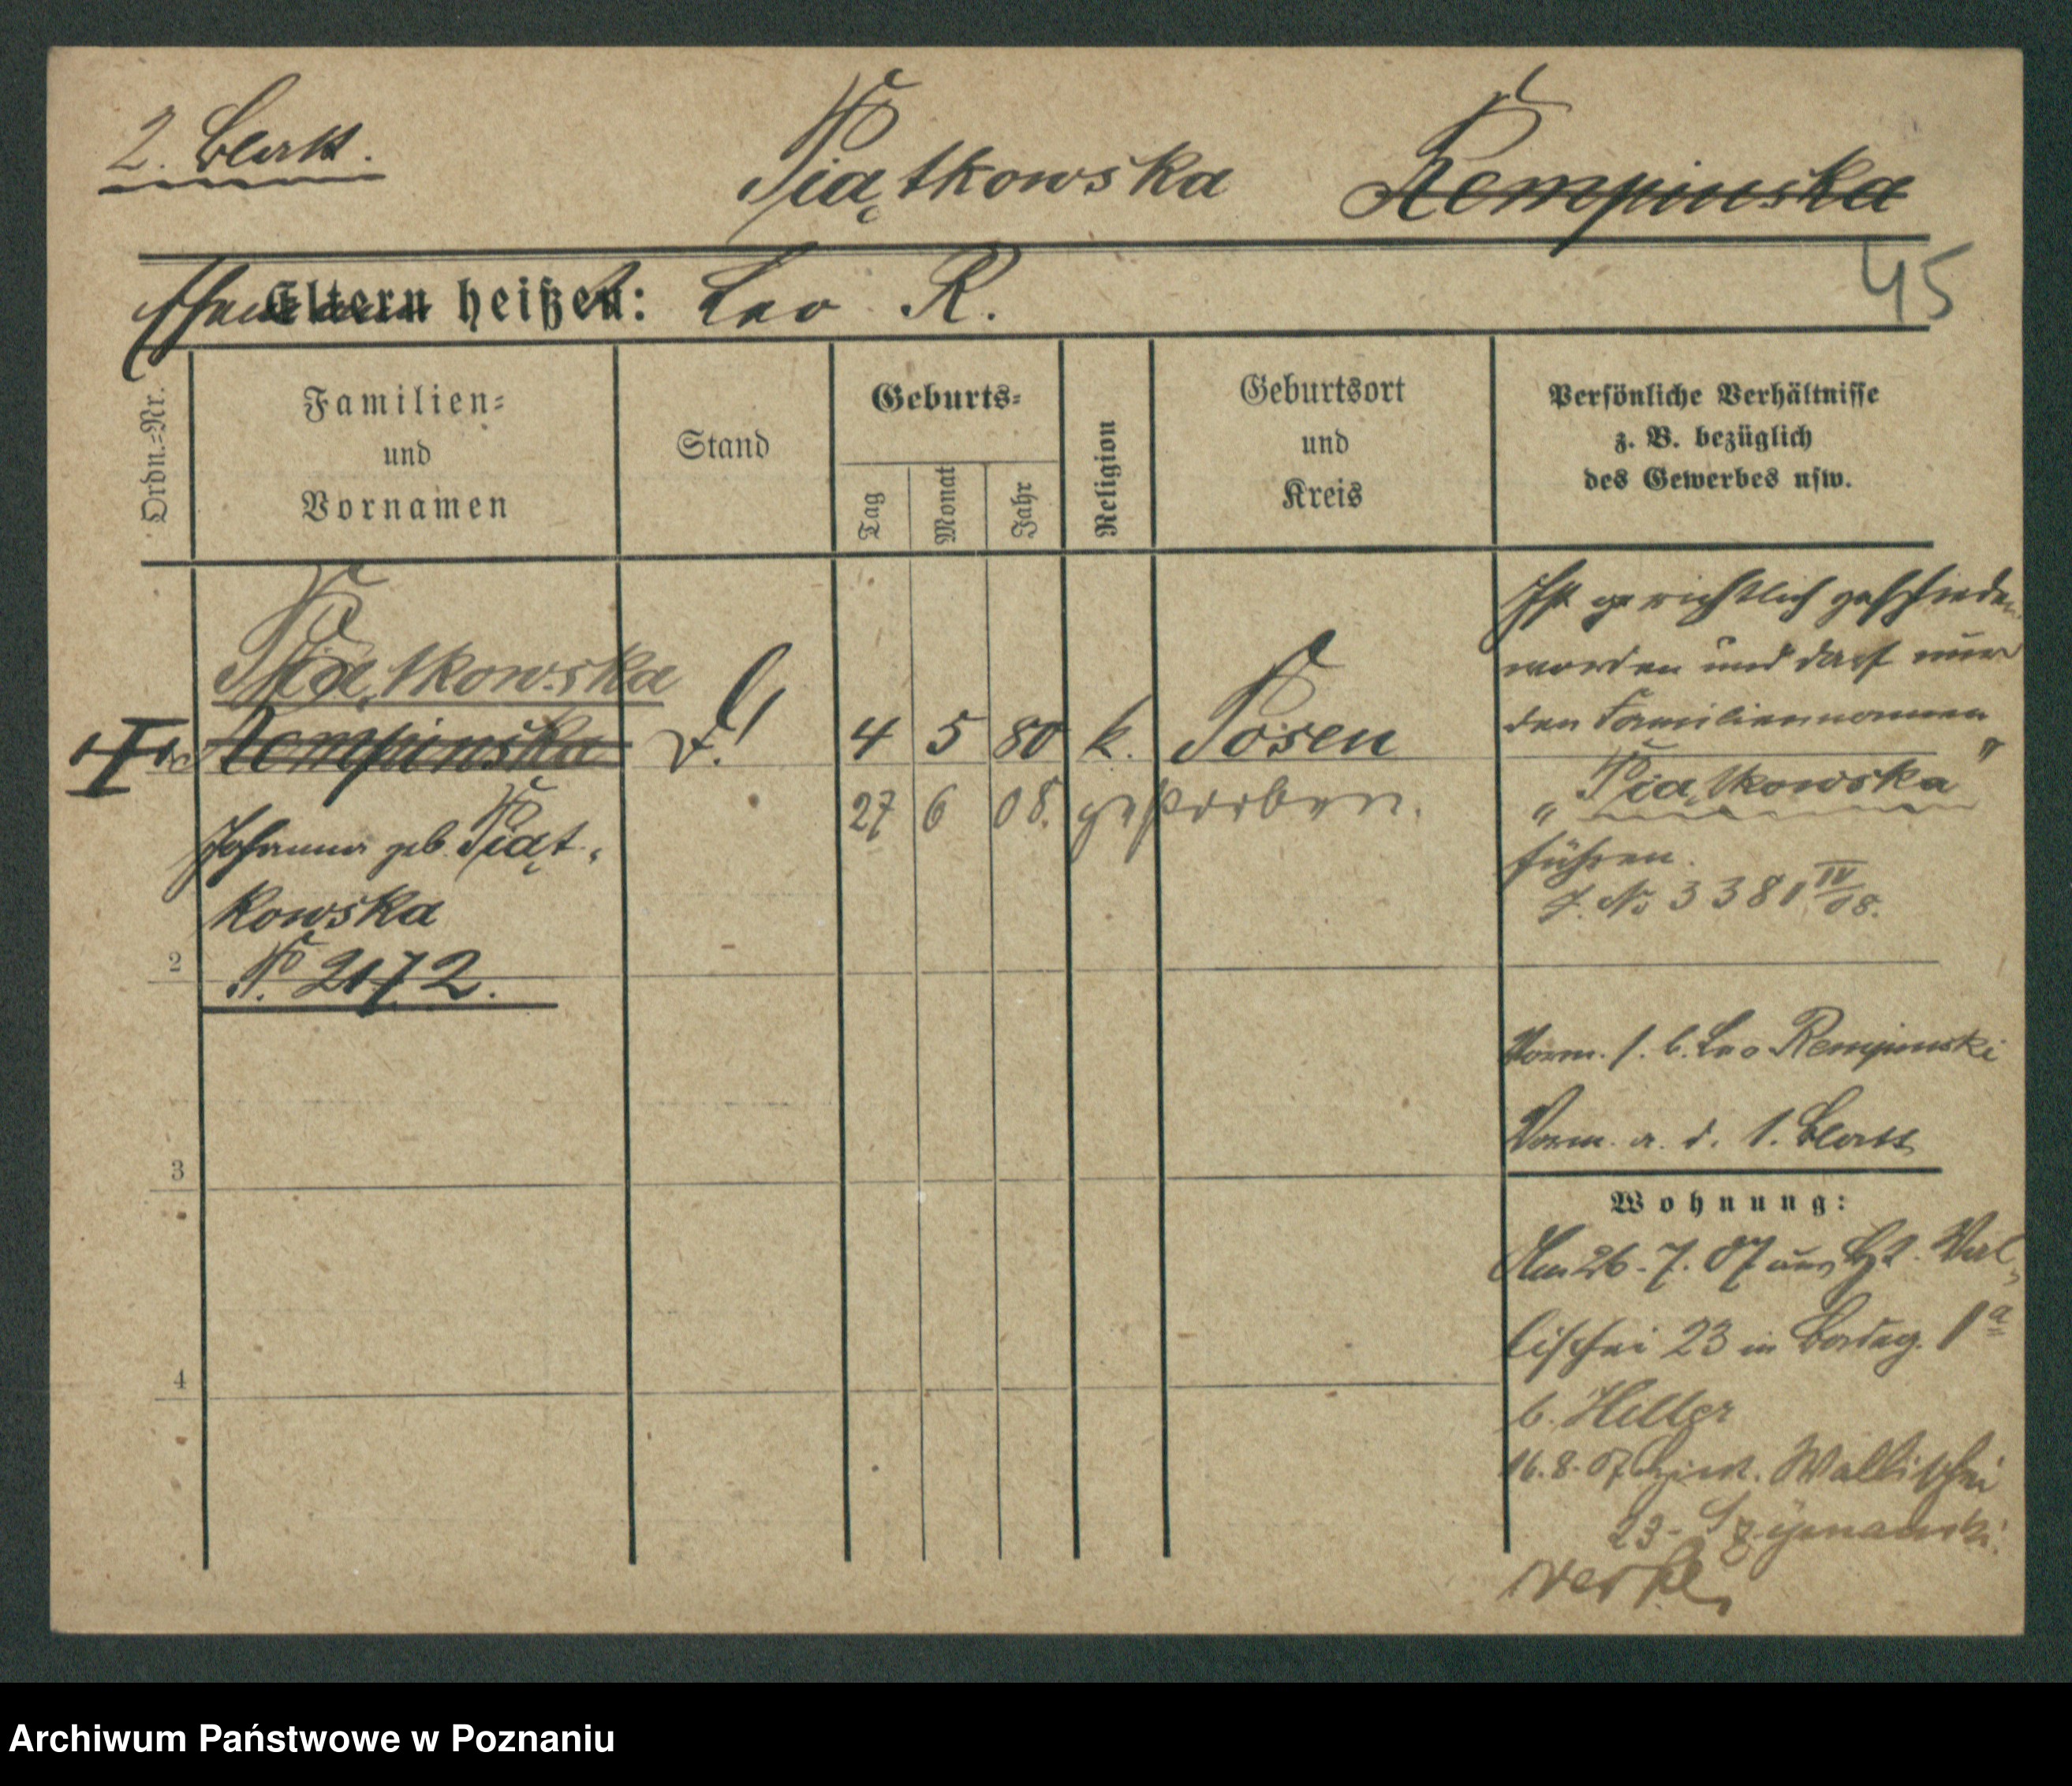 2. Blatt.
Piątkowska Rempinska
Ehemann
Eltern heißen: Leo R.
45
Ordn.=Nr.
Familien=
und
Vornamen
Stand
Geburts=
Tag
Monat
Jahr
Religion
Geburtsort
und
Kreis
Persönliche Verhältnisse
z. B. bezüglich
des Gewerbes usw.
Piątkowska
Rempinska
Johanna geb. Piąt-
kowska
№ 2172.
4 5 80 k. Posen
27 6 08. gestorben.
Ist gerichtlich geschieden
worden und darf nur
den Familiennamen
„Piątkowska"
führen.
J. № 3381 IV/08.
2
Verm. s. b. Leo Rempinski
Verm. a. d. 1. Blatt
3
4
Wohnung:
Am 26. 7. 07 aus Wal-
lischei 23 in 1a
b. Heller
16. 8. 07 Wallischei
23 - Szymanski.